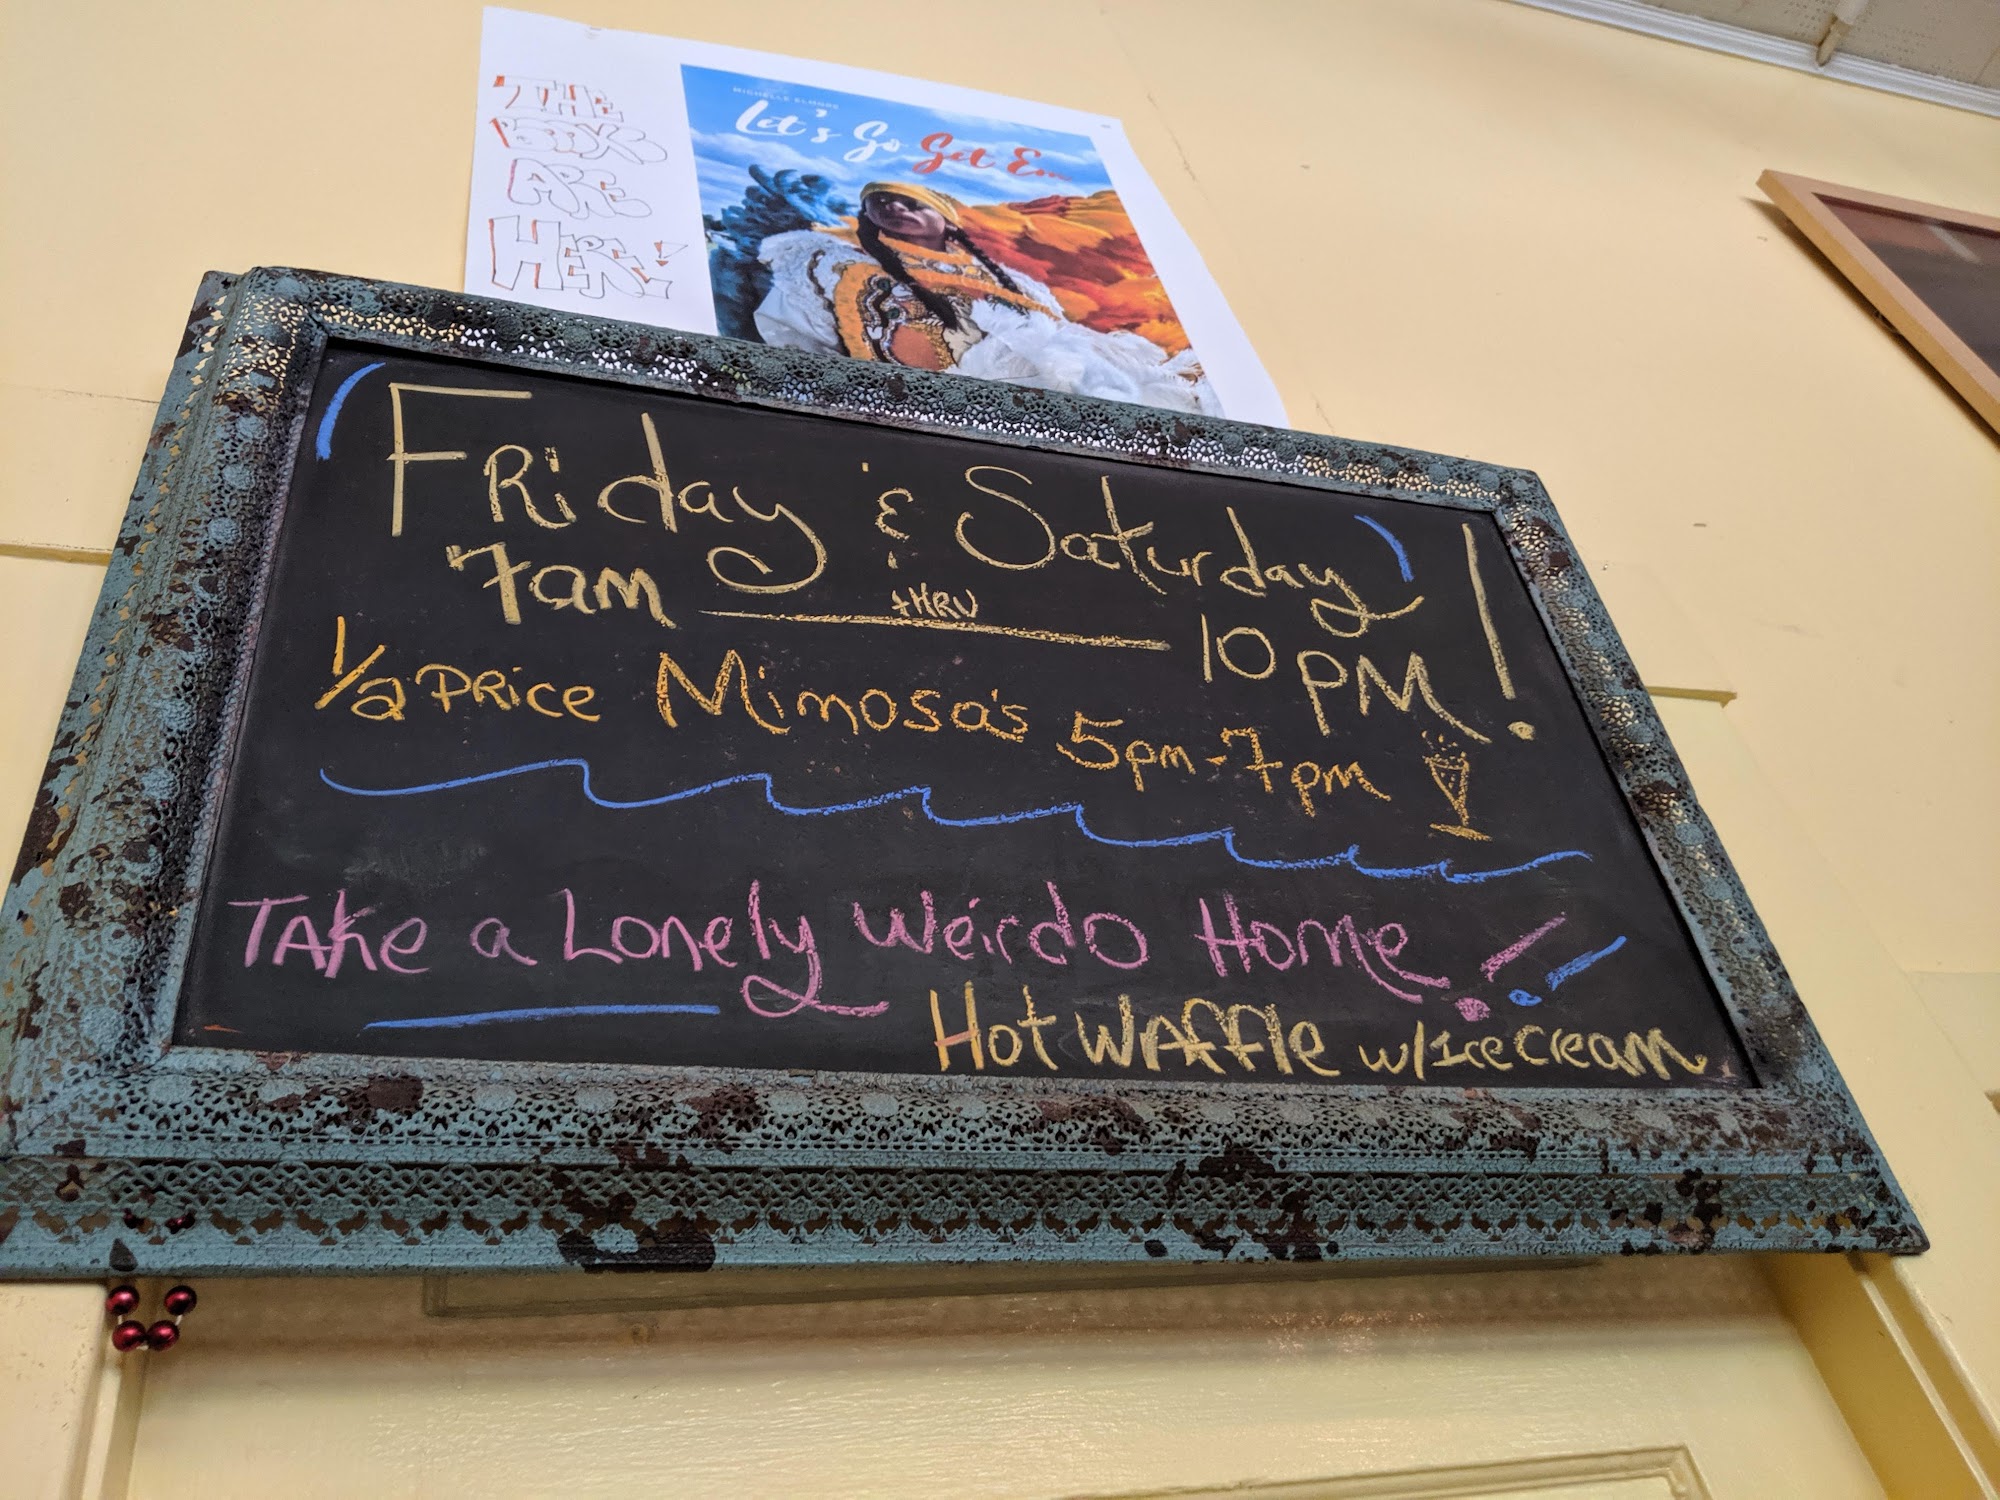 THE
BOOKS
ARE
HERE!
MICHELLE ELMORE
Let's Go Get Em
Friday & Saturday!
7am thru 10PM
1/2 Price Mimosa's 5pm-7pm
Take a Lonely Weirdo Home!!
Hot Waffle w/Ice Cream